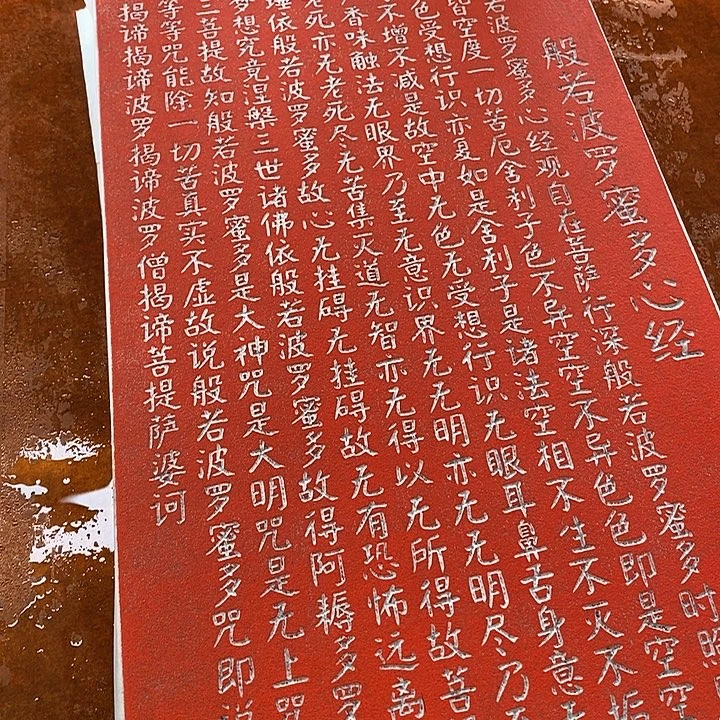 般若波罗蜜多心经
若波罗蜜多心经观自在菩萨行深般若波罗蜜多时照
皆空度一切苦厄舍利子色不异空空不异色色即是空空
色受想行识亦复如是舍利子是诸法空相不生不灭不垢
不增不减是故空中无色无受想行识无眼耳鼻舌身意无
香味触法无眼界乃至无意识界无无明亦无无明尽乃至
老死亦无老死尽无苦集灭道无智亦无得以无所得故菩
埵依般若波罗蜜多故心无挂碍无挂碍故无有恐怖远离
梦想究竟涅槃三世诸佛依般若波罗蜜多故得阿耨多罗
三菩提故知般若波罗蜜多是大神咒是大明咒是无上咒
等等咒能除一切苦真实不虚故说般若波罗蜜多咒即说
揭谛揭谛波罗揭谛波罗僧揭谛菩提萨婆诃